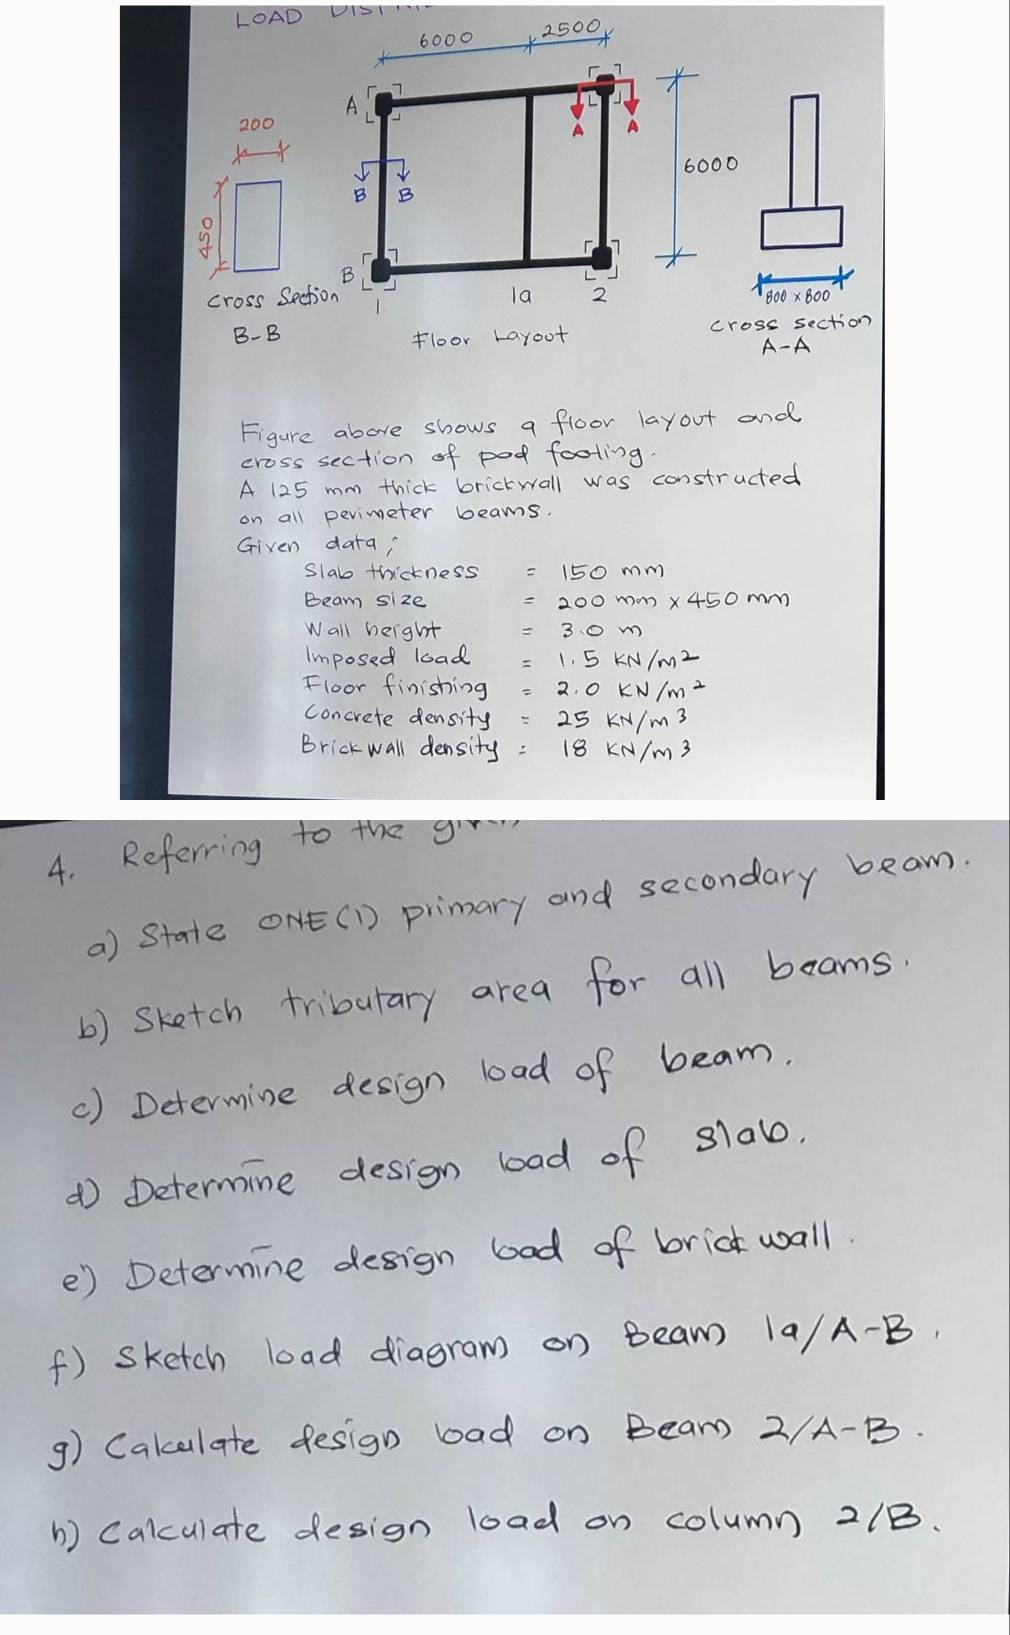 LOAD
6000
2500
A
A
A
200
6000
B
B
450
B
Cross Section
B-B
1
1a
2
Floor Layout
800 x 800
cross section
A-A
Figure above shows a floor layout and
cross section of pad footing.
A 125 mm thick brickwall was constructed
on all perimeter beams.
Given data;
Slab thickness = 150 mm
Beam size = 200 mm x 450 mm
Wall height = 3.0 m
Imposed load = 1.5 KN/m2
Floor finishing = 2.0 KN/m2
Concrete density = 25 KN/m3
Brick wall density = 18 KN/m3
4. Referring to the
a) State ONE (1) primary and secondary beam.
b) Sketch tributary area for all beams.
c) Determine design load of beam.
d) Determine design load of slab.
e) Determine design load of brick wall.
f) Sketch load diagram on Beam 1a/A-B.
g) Calculate design load on Beam 2/A-B.
h) Calculate design load on column 2/B.